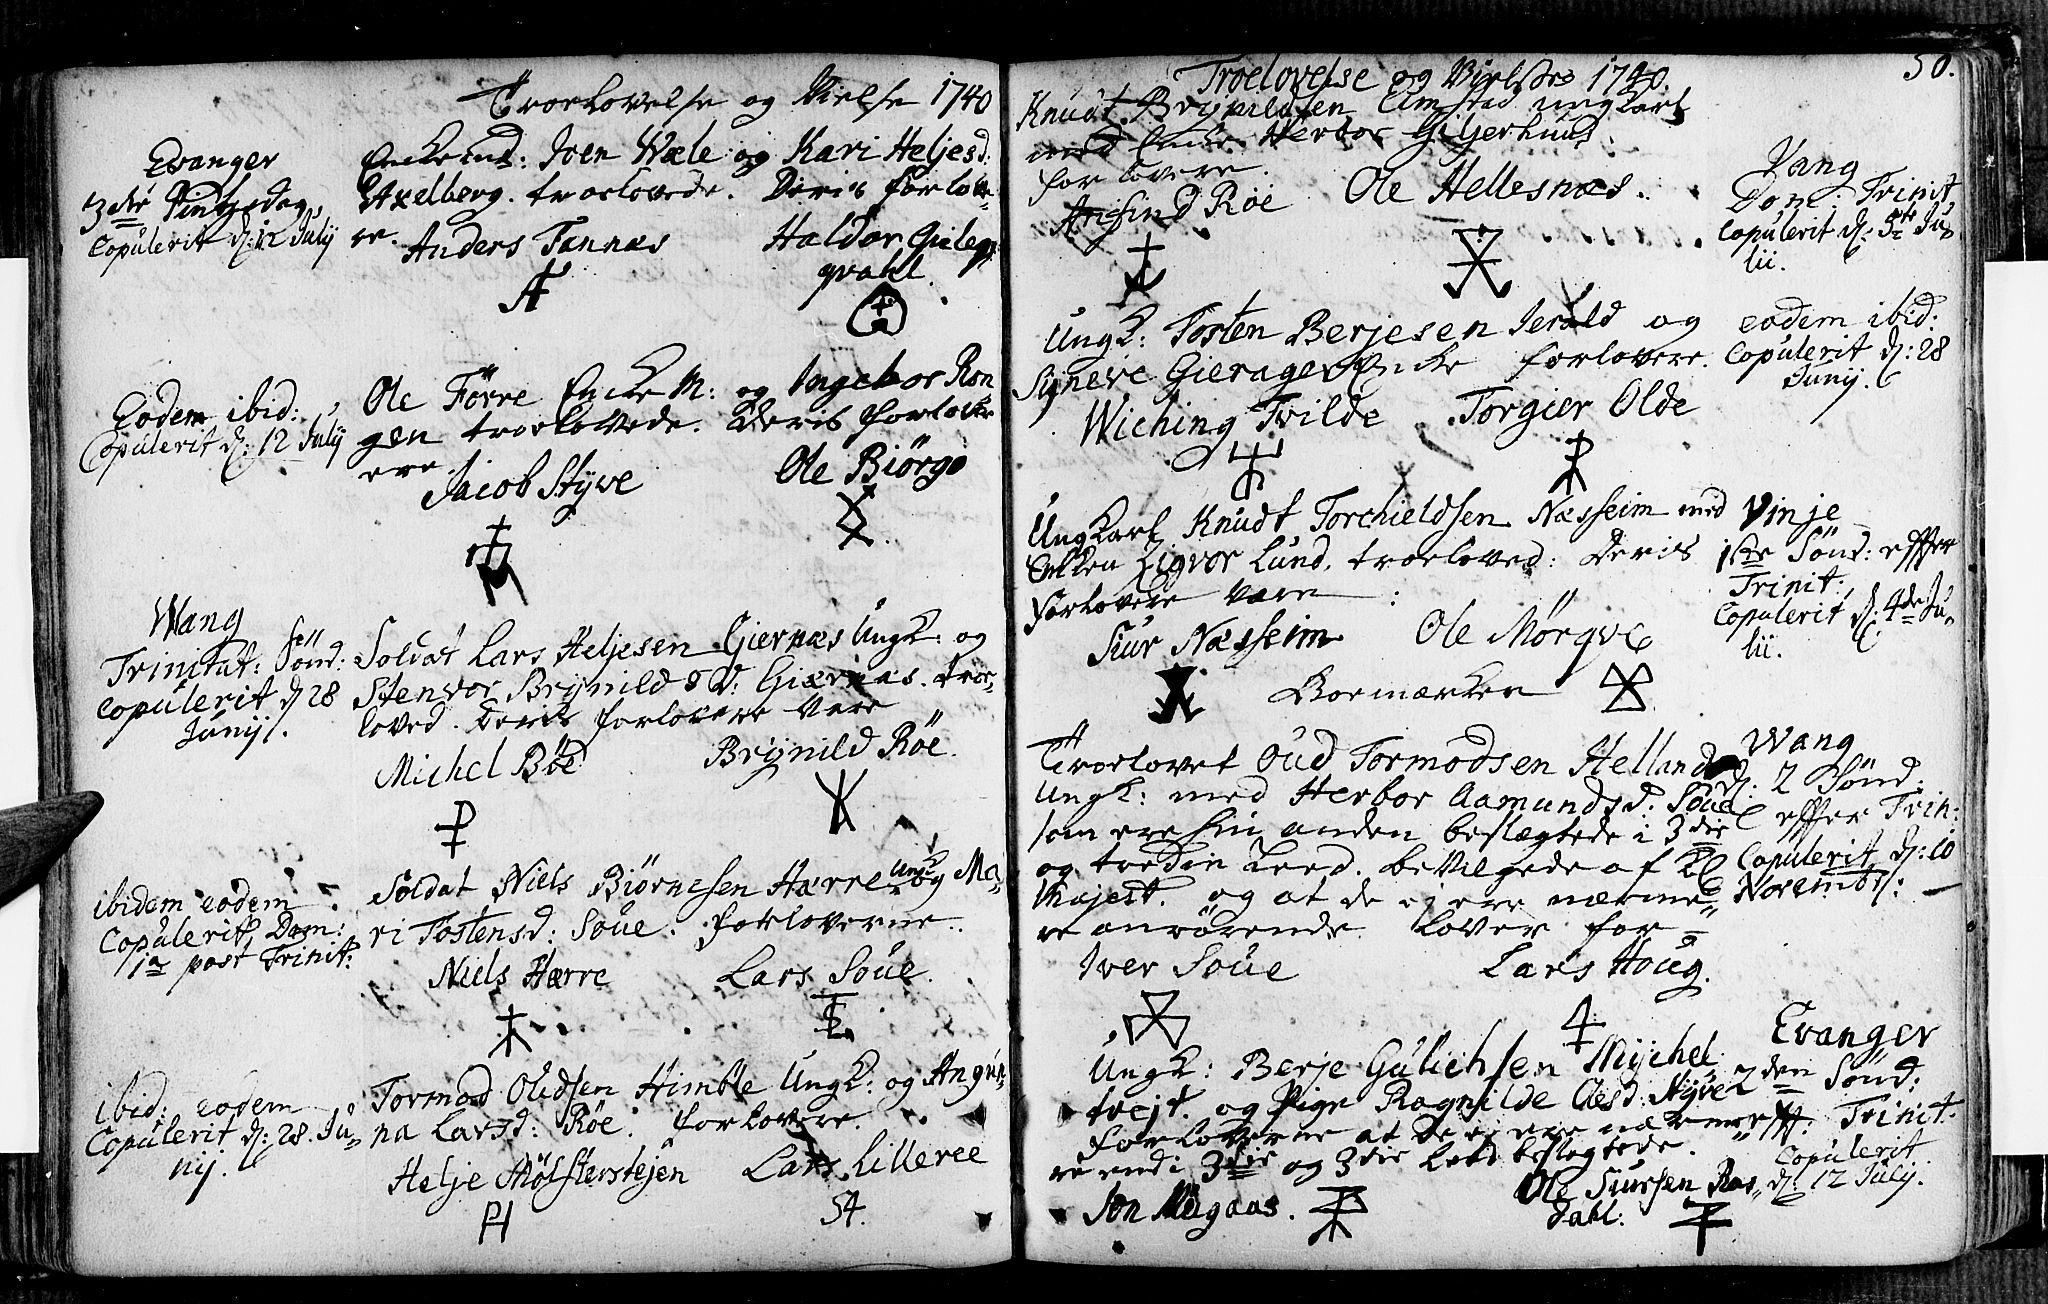 Troelovelse og Vielse 1740
Evanger
3die Pintzedag
Copulerit d: 12 Julij
Enkemd: Iven Wæle og Kari Heljesd:
Axelberg. troelovede. Deris forlove-
re.
Anders Fannæs
Haldor Gieleqvahl.
Eodem ibid:
Copulerit d: 12 Julij
Ole Förre Encke M: og Ingebor Ron
gen troelovede. Deris forlov
ere
Jacob Styve
Ole Biörgo
Wang
Trinitat: Sönd:
Copulerit d 28
Junij.
Soldat Lars Heljesen Giernæs Ungk: og
Stenvor Brynild D: Giernæs. troe-
loved. Deris forlovere vare
Michel Böe
Brynild Röe.
ibidem eodem
Copulerit Dom:
1a post Trinit:
Soldat Niels Biörnesen Hærre Ungk og Ma-
ri Tostensd: Söue. forloverne.
Niels Hærre
Lars Söue.
ibid: eodem
Copulerit d: 28. Ju-
nij.
Tormod Olidsen Himble Ungk: og Angun-
na Larsd: Röe. forlovere.
Helje Mölsterstejen
Lars Lilleree
PH
St.
50.
Troelovelse og Vielse 1740
Knudt Brynildsen Ungkarl
med Enke Herbor Giljerhuus
forlovere.
Arisind Röe
Ole Hellesnæs.
Vang
Dom: Trinit
Copulerit d: 5te Ju-
lii.
Ungk: Tosten Berjesen Jerald og
Syneve Gierager Encke forlovere.
Wiching Tvilde
Torgier Olde
eodem ibid:
Copulerit d: 28
Junij.
Ungkarl Knudt Torchieldsen Næsseim med
Enken Zigvor Lund. troeloved: Deris
forlovere vare :
Siur Næsseim
Ole Mörqve
Boemærker
Vinje
1ste Sönd: effter
Trinit:
Copulerit d: 4de Ju-
lii.
Troelovet Oud Tormodsen Helland
Ungk: med Herbor Aamundsd: Söue
som ere hin anden beslægtede i 3die
og tredie Leed. bevilgede af Kl
Majest. og at de ej ere nærme-
re anrörende lover for-
Iver Söue
Lars Houg.
Wang
d: 2 Sönd:
effter Trin:
Copulerit d: 10
Novembr:
Ungk: Berje Gulichsen Mijchel
trejt. og Pige Ragnilde Olesd: Nyve
forloverne at de ej ere nærme-
re end i 3die og 3die leed beslegtede.
Jon Migaas.
Ole Siursen Ras-
dahl:
Evanger
2den Sönd:
efft: Trinit.
Copulerit
d: 12 Julij.